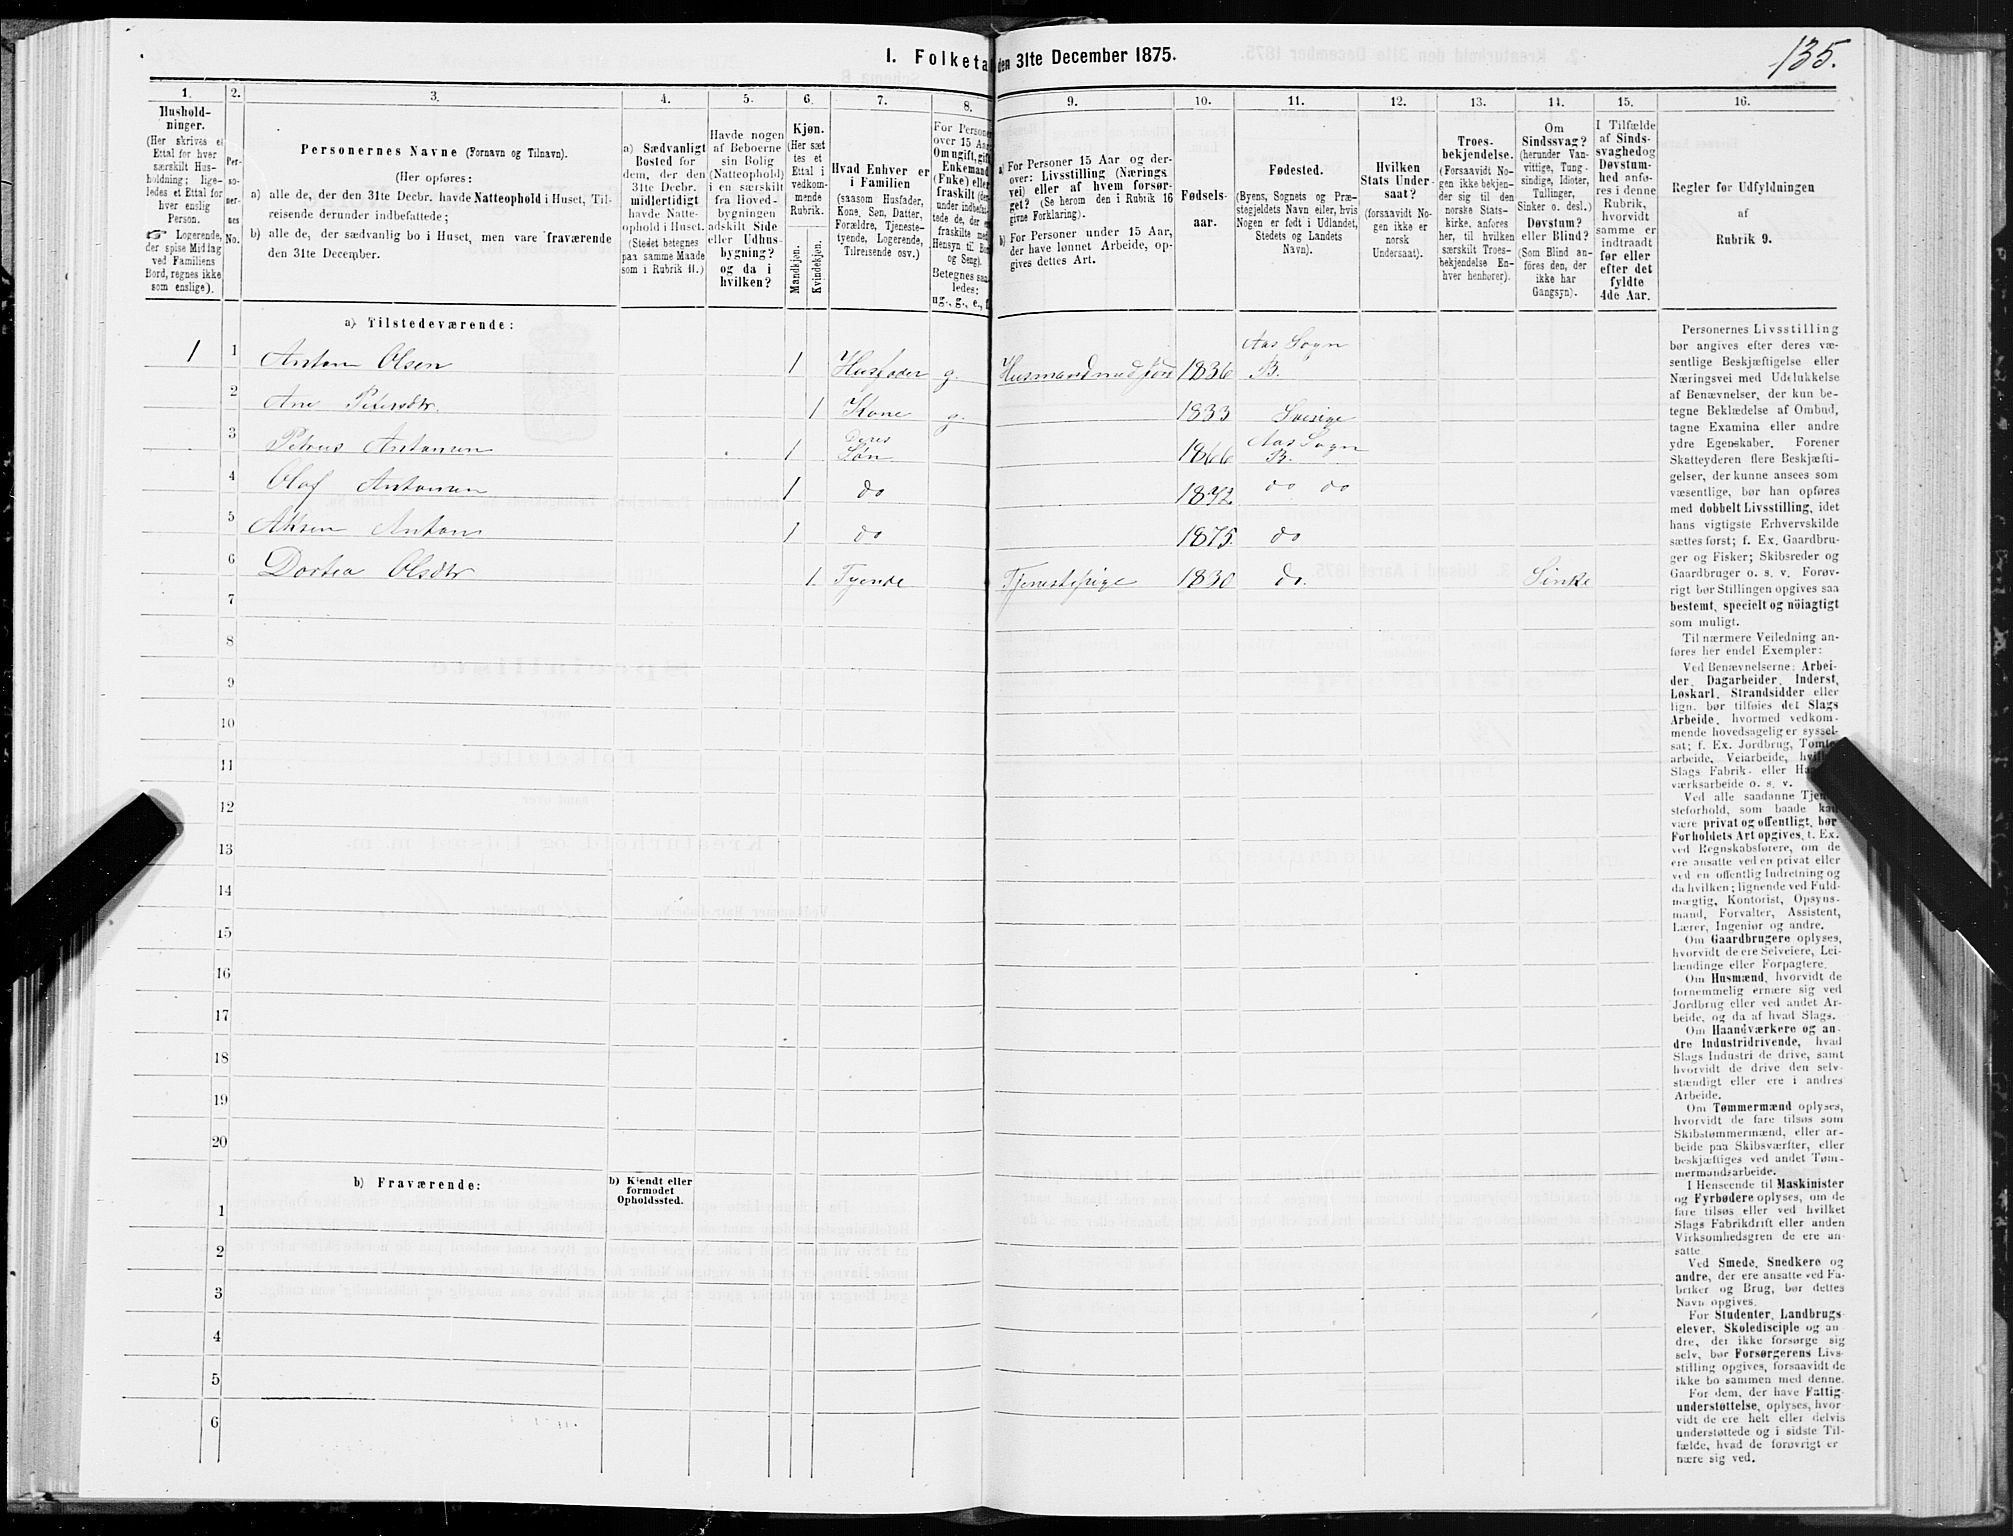 135.
I. Folketal den 31te December 1875.
1.
2.
3.
4.
5.
6.
7.
8.
9.
10.
11.
12.
13.
14.
15.
16.
Hushold-
ninger.
(Her skrives et
Ettal for hver
særskilt Hus-
holdning; lige-
ledes et Ettal for
hver enslig
Person.
☞ Logerende,
der spise Middag
ved Familiens
Bord, regnes ikke
som enslige).
Per-
so-
ner-
nes
No.
Personernes Navne (Fornavn og Tilnavn).
(Her opføres:
a) alle de, der den 31te Decbr. havde Natteophold i Huset, Til-
reisende derunder indbefattede;
b) alle de, der sædvanlig bo i Huset, men vare fraværende
den 31te December.
a) Sædvanligt
Bosted for
dem, der den
31te Decbr.
midlertidigt
havde Natte-
ophold i Huset.
(Stedet betegnes
paa samme Maade
som i Rubrik 11.)
Havde nogen
af Beboerne
sin Bolig
(Natteophold)
i en særskilt
fra Hoved-
bygningen
adskilt Side
eller Udhus-
bygning?
og da i
hvilken?
Kjøn.
(Her sæt
tes et
Ettal i
vedkom-
mende
Rubrik.
Mandkjøn.
Kvindekjøn.
Hvad Enhver er
i Familien
(saasom Husfader,
Kone, Søn, Datter,
Forældre, Tjeneste-
tyende, Logerende,
Tilreisende osv.)
For Persone
over 15 Aa
Om ugift, gif
Enkemand
(Enke) elle
fraskilt (de
under indbefat
tede de, der e
fraskilte me
Hensyn til Bo
og Seng).
Betegnes saa
ledes:
ug., g., e., f
a) For Personer 15 Aar og der-
over: Livsstilling (Nærings
vei) eller af hvem forsør-
get? (Se herom den i Rubrik 16
givne Forklaring).
b) For Personer under 15 Aar,
der have lønnet Arbeide, op-
gives dettes Art.
Fødsels-
aar.
Fødested.
(Byens, Sognets og Præ-
stegjeldets Navn eller, hvis
Nogen er født i Udlandet,
Stedets og Landets
Navn).
Hvilken
Stats Under-
saat?
(forsaavidt No-
gen ikke er
norsk
Undersaat).
Troes-
bekjendelse.
(Forsaavidt No-
gen ikke bekjen-
der sig til den
norske Stats-
kirke, anføres
her, til hvilken
særskilt Troes-
bekjendelse En-
hver henhører).
Om
Sindssvag?
(herunder Van-
vittige, Tung-
sindige, Idioter,
Tullinger,
Sinker o. desl.)
Døvstum?
eller Blind?
(Som Blind an-
føres den, der
ikke har
Gangsyn).
I Tilfælde
af Sinds-
svaghed og
Døvstum-
hed anfø-
res i denne
Rubrik,
hvorvidt
samme er
indtraadt
før eller
efter det
fyldte
4de Aar.
Regler før Udfyldningen
af
Rubrik 9.
a) Tilstedeværende:
1 1 Anton Olsen 1 Husfader g. Husmand med Jord 1836 Aas Sogn B.
2 Ane Petersdtr. 1 Kone g. 1833 Sverige
3 Petrus Antonsen 1 Deres Søn 1866 Aas Sogn B.
4 Olaf Antonsen 1 do 1872 do do
5 Anton 1 do 1875. do
6 Dortea Olsdtr 1. Tyende Tjenestepige 1830 do. Sinke
7
8
9
10
11
12
13
14
15
16
17
18
19
20
b) Fraværende:
b) Kjendt eller
formodet
Opholdssted.
1
2
3
4
5
6
Personernes Livsstilling
bør angives efter deres væ-
sentlige Beskjæftigelse eller
Næringsvei med Udelukkelse
af Benævnelser, der kun be-
tegne Beklædelse af Ombud,
tagne Examina eller andre
ydre Egenskaber. Forener
Skatteyderen flere Beskjæfti-
gelser, der kunne ansees som
væsentlige, bør han opføres
med dobbelt Livsstilling, idet
hans vigtigste Erhvervskilde
sættes først; f. Ex. Gaardbru-
ger og Fisker; Skibsreder og
Gaardbruger o. s. v. Forøv-
rigt bør Stillingen opgives saa
bestemt, specielt og nöiagtigt
som muligt.
Til nærmere Veiledning an-
føres her endel Exempler:
Ved Benævnelserne: Arbei-
der, Dagarbeider, Inderst,
Løskarl, Strandsidder eller
lign. bør tilføies det Slags
Arbeide, hvormed vedkom-
mende hovedsagelig er syssel-
sat; f. Ex. Jordbrug, Tomte-
arbeide, Veiarbeide, hvil
Slags Fabrik- eller Ha
værksarbeide o. s. v.
Ved alle saadanne Tjen
steforhold, som baade kan
være privat og offentligt, bør
Forholdets Art opgives, t. Ex.
ved Regnskabsførere, om de
ere ansatte ved en privat eller
ved en offentlig Indretning og
da hvilken; lignende ved Fuld-
mægtig, Kontorist, Opsyns-
mand, Forvalter, Assistent,
Lærer, Ingeniør og andre.
Om Gaardbrugere oplyses,
hvorvidt de ere Selveiere, Lei-
lændinge eller Forpagtere.
Om Husmænd, hvorvidt de
fornemmelig ernære sig ved
Jordbrug eller ved andet Ar-
beide, og da af hvad Slags.
Om Haandværkere og an-
dre Industridrivende, hvad
Slags Industri de drive, samt
hvorvidt de drive den selv-
stændigt eller ere i andres
Arbeide.
Om Tømmermænd oplyses,
hvorvidt de fare tilsøs som
Skibstømmermænd, eller ar-
beide paa Skibsværfter, eller
beskjæftiges ved andet Tøm-
mermandsarbeide.
I Henseende til Maskinister
og Fyrbødere oplyses, om de
fare tilsøs eller ved hvilket
Slags Fabrikdrift eller anden
Virksomhedsgren de ere an-
satte
Ved Smede, Snedkere og
andre, der ere ansatte ved Fa-
briker og Brug, bør dettes
Navn opgives.
For Studenter, Landbrugs-
elever, Skoledisciple og an-
dre, der ikke forsørge sig
selv, bør Forsørgerens Livs-
stilling opgives, forsaavidt de
ikke bo sammen med denne.
For dem, der have Fattig-
understøttelse, oplyses, hvor-
vidt de ere helt eller delvis
understøttede og i sidste Til-
fælde, hvad de forøvrigt er
nære sig ved.